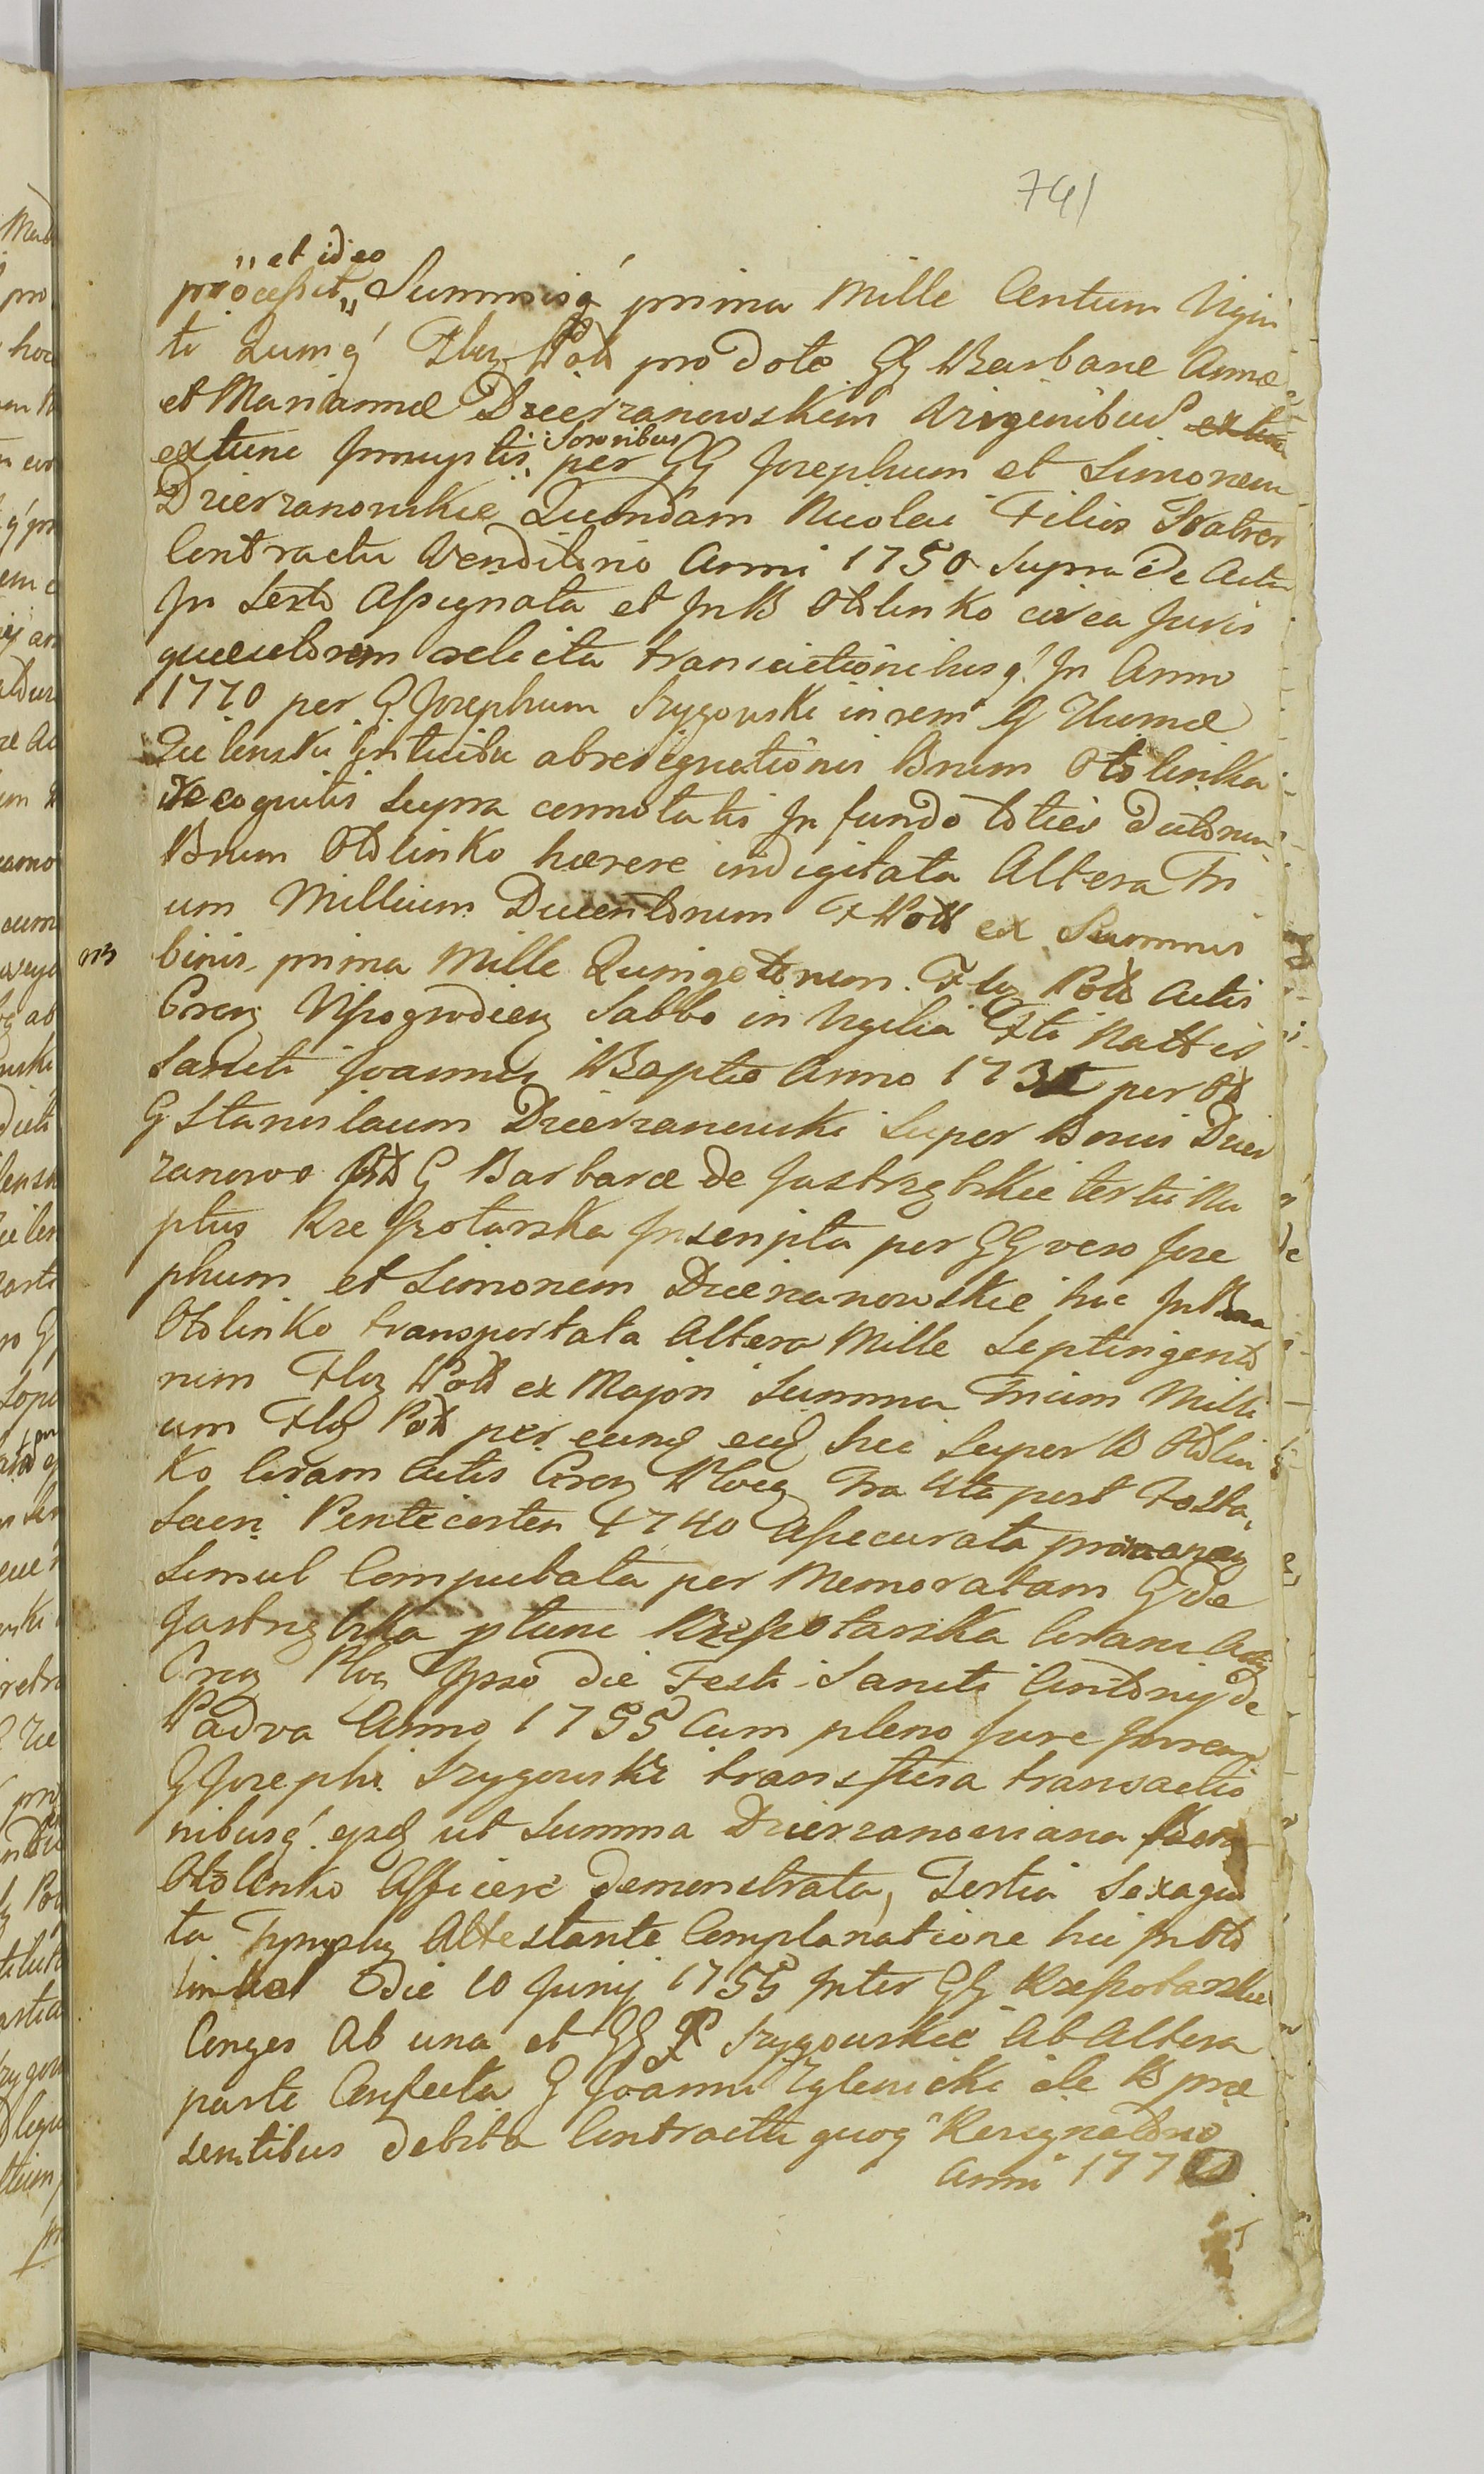 741
„ et ideo
processit „ Summisq́ prima Mille Centum Vigin
ti Quinq́ Flor Poll pro dote GG Barbarae Annae
et Mariannae Dzierzanowskim Virginibus
extunc Innuptis, Sororibus per GG Josephum et Simonem
Dzierzanowskie Quondam Nicolai Filios Fratres
Contractu Venditorio Anni 1750 Supra de Actu
In Sexto Assignata et In B Otolinko circa Juris
quaesitorem relicta transactionibusq́ In Anno
1770 per G Josephum Szygowski in rem G Thomae
Zielinski intuitu abresignationis Bnum Otolinka
recognitis Supra connotatis In fundo toties dictorum
Bnum Otolinko haerere indigitata Altera Tri
um Millium Ducentorum F Poll ex Summis
binis, prima Mille Quingetorum Flor Poll Actis
Crens Wyszogrodien Sabbo in Vigilia Fti Nattis
Sancti Joannis Baptae Anno 173 per Ol
G Stanislaum Dzierzanowski Super Bonis Dzier
zanowo G Barbarae de Jastrzębskie tertii Nu
ptus Krespotarska Inscripta per GG vero Jose
phum et Simonem Dzierzanowskie hic In Bona
Otolinko transportata Altera Mille Septingento
rum Flor Poll ex Majori Summa Trium Milli
um Flor Poll per eund eid hic Super B Otolin
ko Coram Actis Cren Ploc Fra 4ta post Festa
Sacri Pentecosten 1740 Assecurata
Simul Computata per Memoratam G de
Jastrzębska ptunc Krespotarska Coram Actis
Cren Ploc Ipso die Festi Sancti Antonij de
Padva Anno 1755 Cum pleno Jure In rem
G Josephi Szygowski transfusa transactio
nibusq́ ejusd ut Summa Dzierzanoviana Bona
Otolinko Afficere demonstrata, Tertia Sexagin
ta Tynphor Attestante Complanatione hic In Oto
linko die 10 Junij 1755 Inter GG Krespotarskie
Conges Ab una et GG Szygowskie Ab Altera
parte Confecta G Joanni Zglenicki de B prae
sentibus debita Contractu quoq Resignatorio
Anni 177